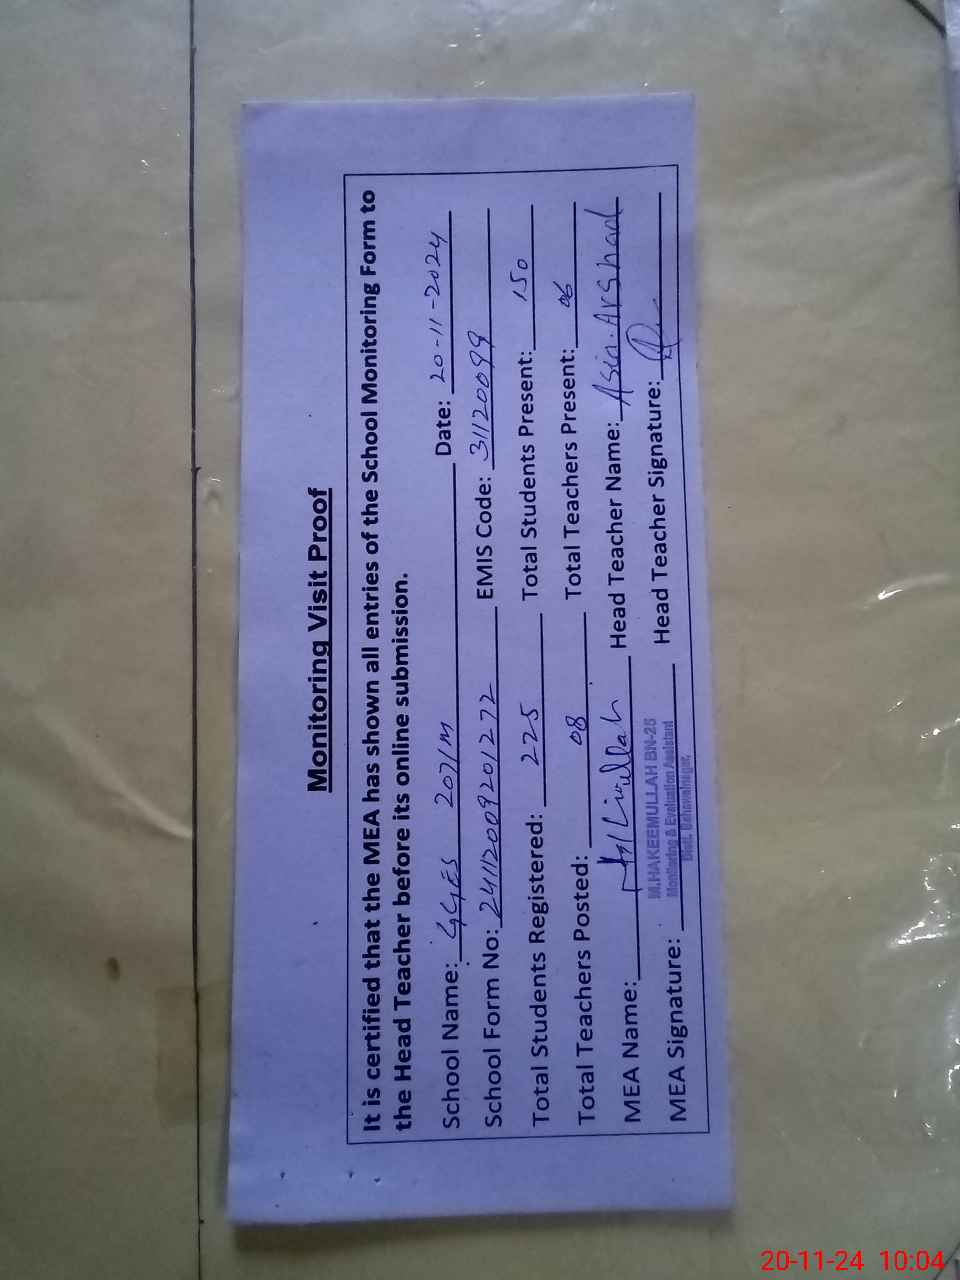 Monitoring Visit Proof
It is certified that the MEA has shown all entries of the School Monitoring Form to
the Head Teacher before its online submission.
School Name: GGES 207/M Date: 20-11-2024
School Form No: 24112009201272 EMIS Code: 31120099
Total Students Registered: 225 Total Students Present: 150
Total Teachers Posted: 08 Total Teachers Present: 06
MEA Name: Head Teacher Name: Asia Arshad
M.HAKEEMULLAH BN-25
MEA Signature: Head Teacher Signature:
Monitoring & Evaluation Assistant
Distt. Bahawalnagar.
20-11-24 10:04